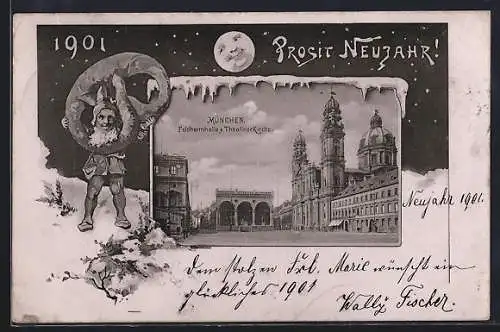 1901
Prosit Neujahr!
MÜNCHEN.
Feldherrnhalle u. Theatinerkirche.
Neujahr 1901.
Dem stolzen Frl. Marie wünscht ein
glückliches 1901
Wally Fischer.